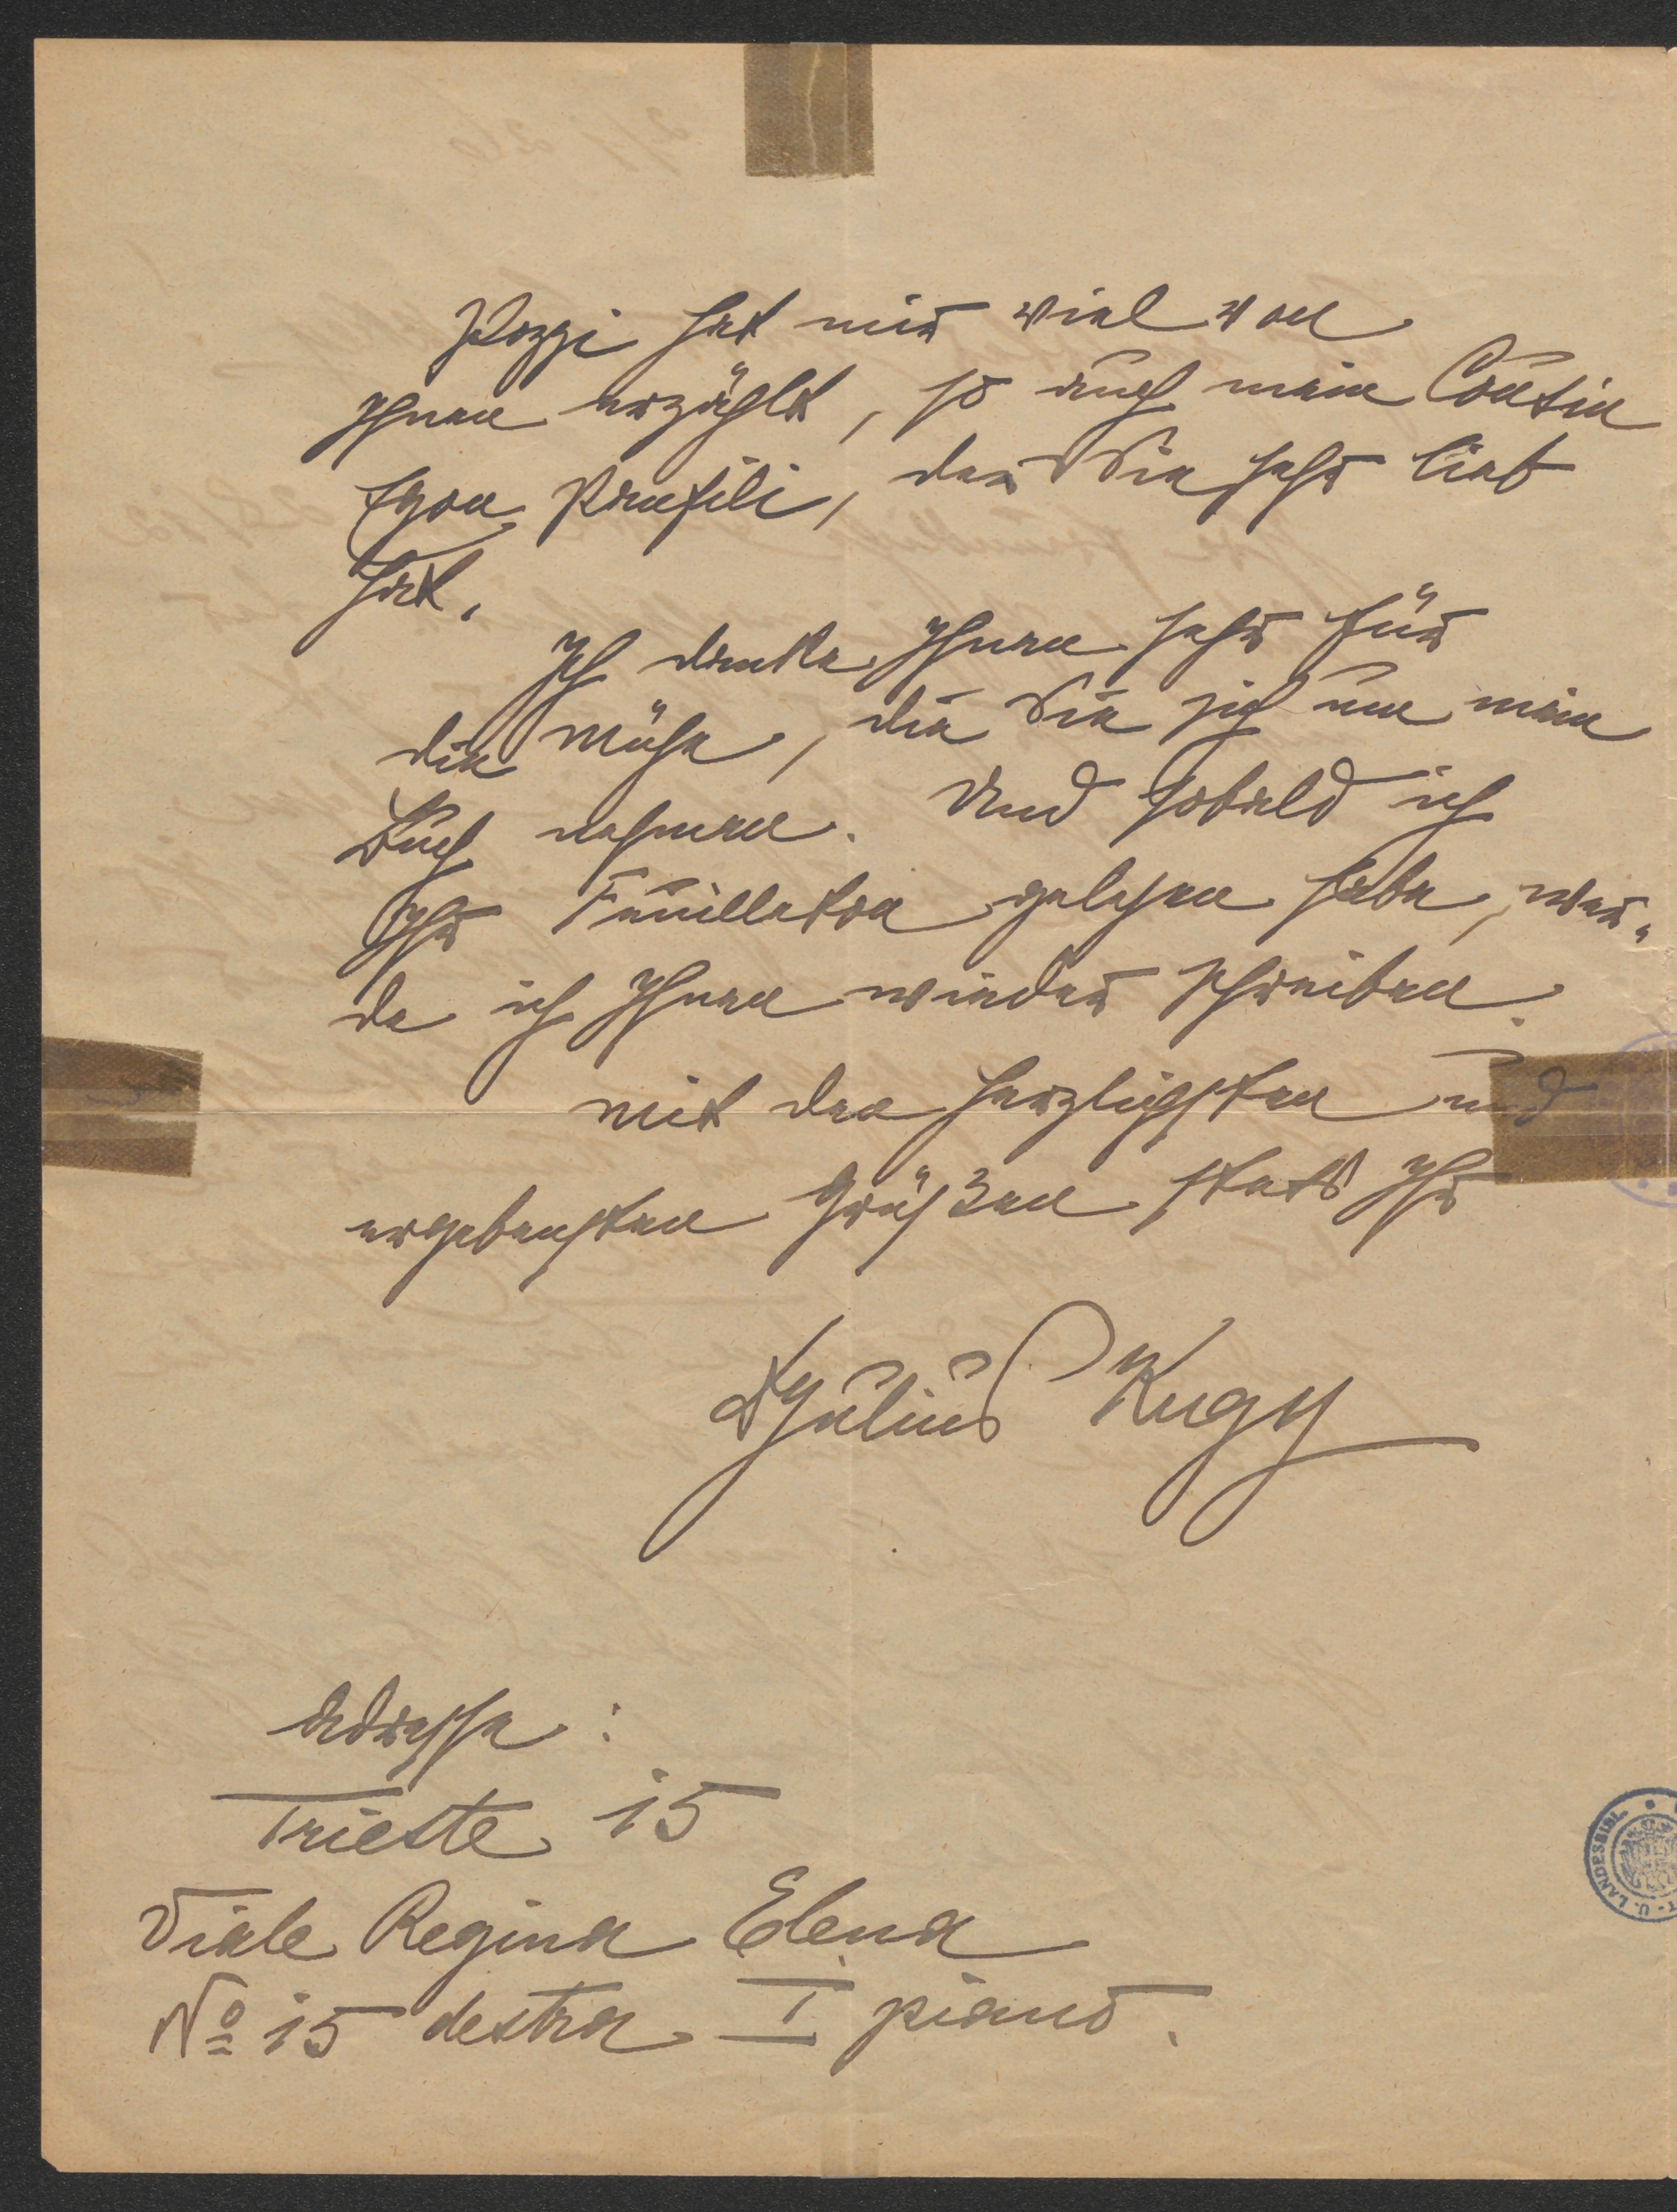 Pozzi hat mir viel von
Ihnen erzählt, so auch mein Cousin
Egon Pransili, der Sie sehr lieb
hat.
Ich danke Ihnen sehr für
die Mühe, die Sie sich um mein
Buch nehmen. Und sobald ich
Ihr Feuilleton gelesen habe, wer„
de ich Ihnen wieder schreiben.
Mit den herzlichsten und
ergebensten Grüßen stets Ihr
Dr Julius Kugy
Adresse:
Trieste 15
Viale Regina Elena
No 15 destra I piano.
T.-U. LANDESBIBL.